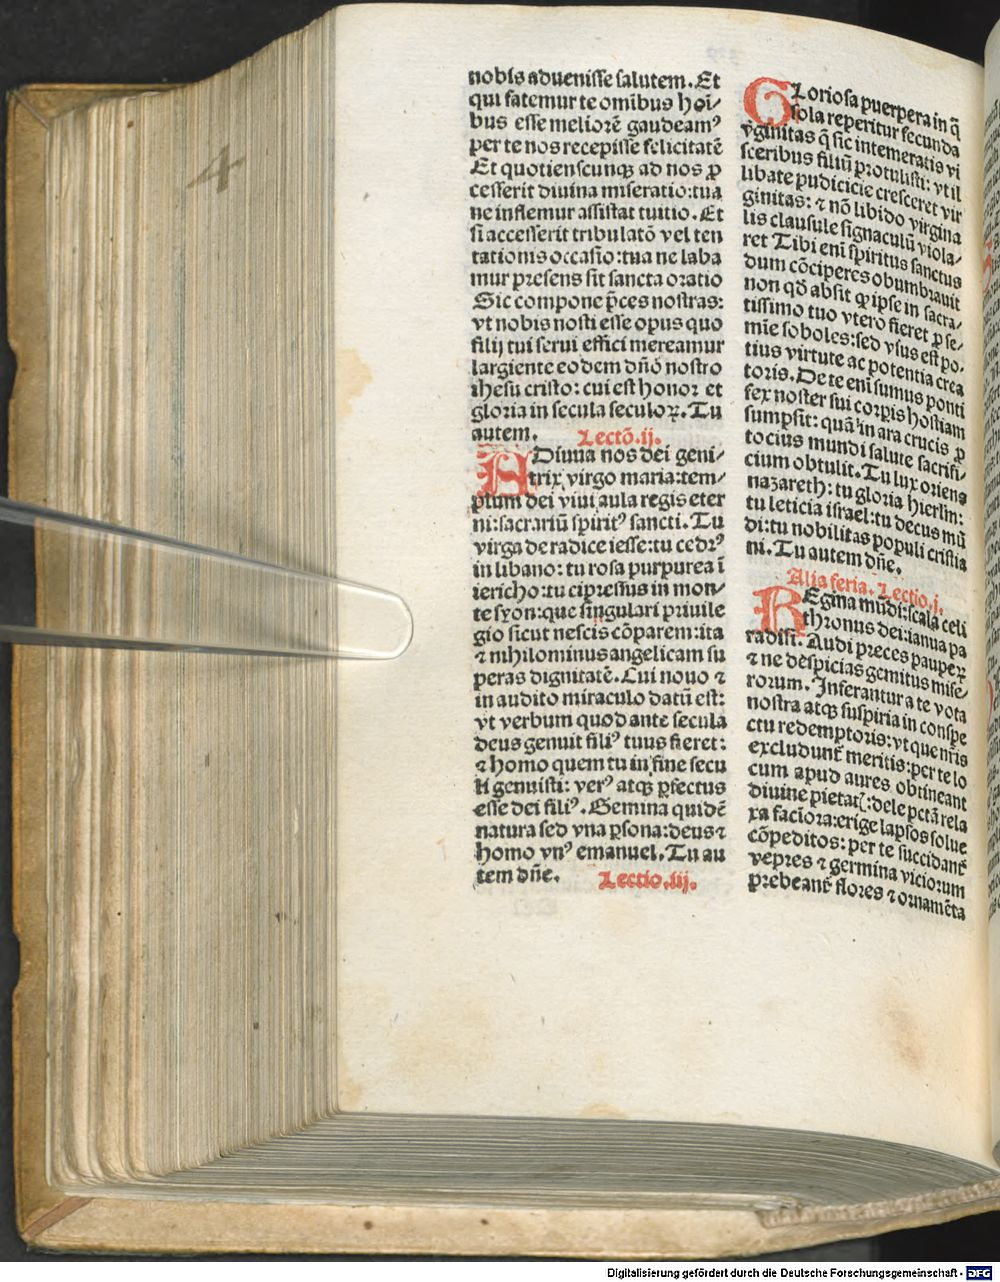 4
nobis aduenisse salutem. Et
qui fatemur te omĩbus hoi/
bus esse meliorē gaudeamꝰ
per te nos recepisse felicitatē
Et quotienscunqꝫ ad nos ꝓ
cesserit diuina miseratio: tua
ne inflemur assistat tuitio. Et
si accesserit tribulatō vel ten
tationis occasio: tua ne laba
mur presens sit sancta oratio
Sic compone p̄ces nostras:
vt nobis nosti esse opus quo
filij tui serui effici mereamur
largiente eodem dn̄o nostro
ihesu cristo: cui est honor et
gloria in secula seculoꝝ. Tu
autem. Lectō. ij.
ADiuua nos dei geni/
trix virgo maria: tem/
plum dei viui aula regis eter
ni: sacrariū spiritꝰ sancti. Tu
virga de radice iesse: tu cedrꝰ
in libano: tu rosa purpurea ī
iericho: tu cipressus in mon/
te syon: que singulari priuile
gio sicut nescis cōparem: ita
⁊ nihilominus angelicam su
peras dignitatē. Cui nouo ⁊
in audito miraculo datū est:
vt verbum quod ante secula
deus genuit filiꝰ tuus fieret:
⁊ homo quem tu in fine secu
li genuisti: verꝰ atqꝫ ꝑfectus
esse dei filiꝰ. Gemina quidē
natura sed vna ꝑsona: deus ⁊
homo vnꝰ emanuel. Tu au
tem dn̄e. Lectio. iij.
GLoriosa puerpera in q̄
sola reperitur fecunda
vginitas q̄ sic intemeratis vi
sceribus filiū protulisti: vt il
libate pudicicie cresceret vir
ginitas: ⁊ nō libido virgina
lis clausule signaculū viola/
ret Tibi eni spiritus sanctus
dum cōciperes obumbrauit
non qd̄ absit ꝙ ipse in sacra/
tissimo tuo vtero fieret ꝑ se/
mĩe soboles: sed vsus est po/
tius virtute ac potentia crea
toris. De te eni sumus ponti
fex noster sui corꝑis hostiam
sumpsit: quā in ara crucis ꝓ
tocius mundi salute sacrifi/
cium obtulit. Tu lux oriens
nazareth: tu gloria hierlm:
tu leticia israel: tu decus mū
di: tu nobilitas populi cristia
ni. Tu autem dn̄e.
Alia feria. Lectio. j.
REgina mūdi: scala celi
thronus dei: ianua pa
radisi. Audi preces pauperꝝ
⁊ ne despicias gemitus mise/
rorum. Inferantur a te vota
nostra atqꝫ suspiria in conspe
ctu redemptoris: vt que nr̄is
excludunt̄ meritis: per te lo
cum apud aures obtineant
diuine pietatꝭ: dele pctā rela
xa faciora: erige lapsos solue
cōpeditos: per te succidant̄
vepres ⁊ germina viciorum
prebeant̄ flores ⁊ ornamēta
Digitalisierung gefördert durch die Deutsche Forschungsgemeinschaft - DFG